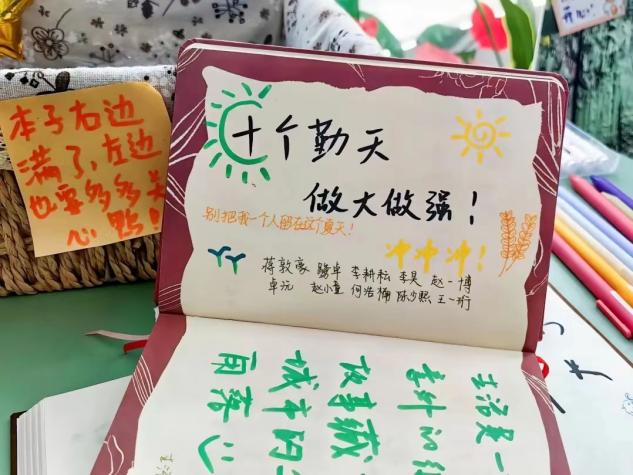 本子右边
满了,左边
也要多多关
心點!
十个勤天
做大做强!
别把我一个人留在这个夏天!
冲冲冲!
蒋敦豪 鹭卓 李耕耘 李昊 赵一博
卓沅 赵小童 何浩楠 陈少熙 王一珩
生活是一
意外的
故事
城市的
雨落